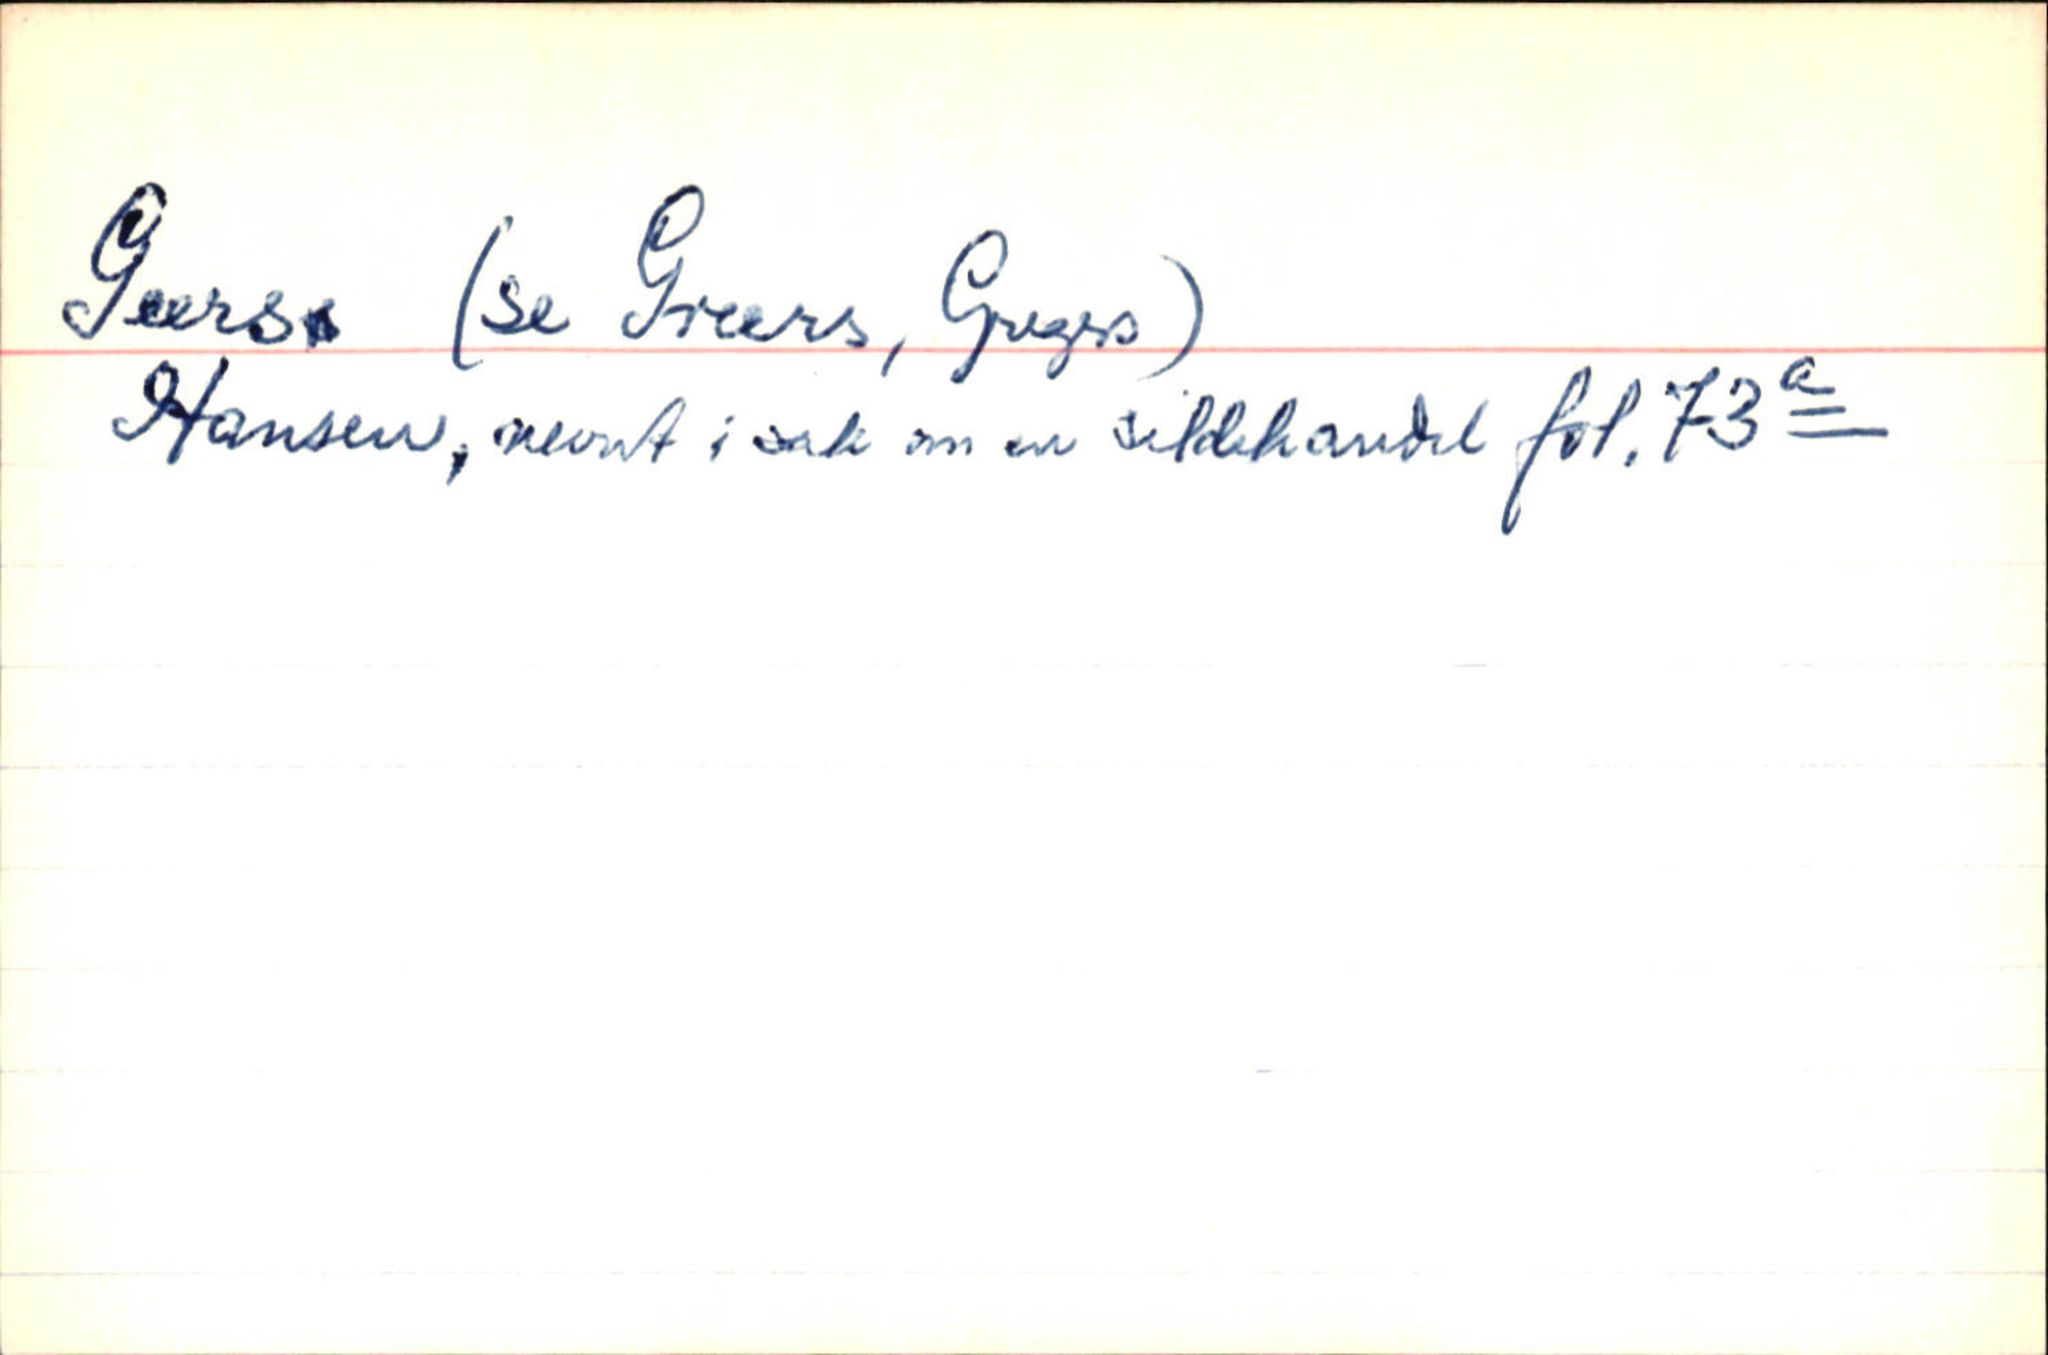 Geers (se Greers, Gregrs)
Hansen, nevnt i sak om en sildehandel fol. 73a